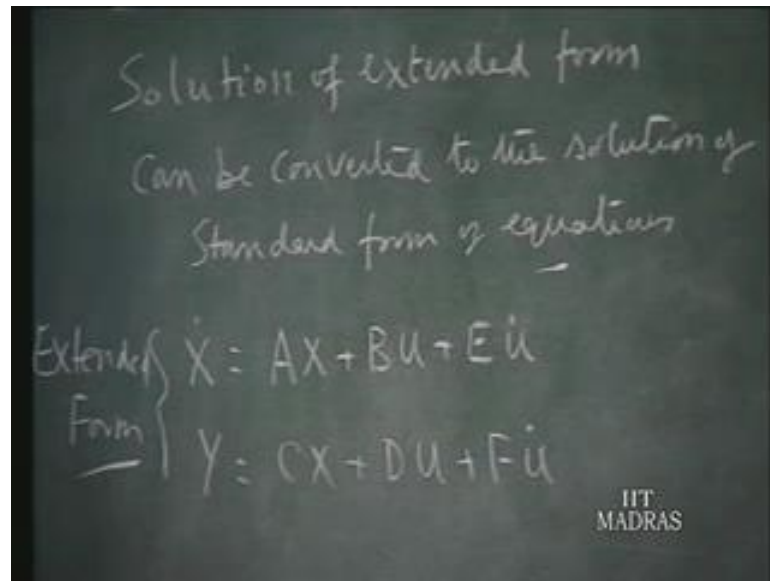 Solution of extended form
Can be converted to the solution of
Standard form of equations
Extended Form
Ẋ = AX + BU + EU̇
Y = CX + DU + FU̇
IIT
MADRAS